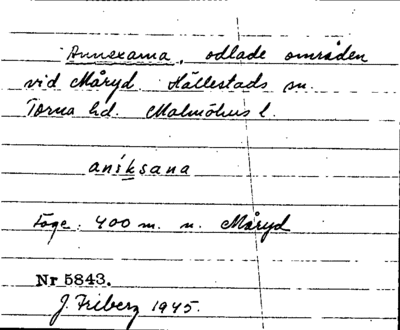 Annexarna, odlade områden
vid Måryd Hällestads sn.
Torna hd. Malmöhus l.
aniksana
Läge: 400 m. n. Måryd
Nr 5843.
J. Friberg 1945.